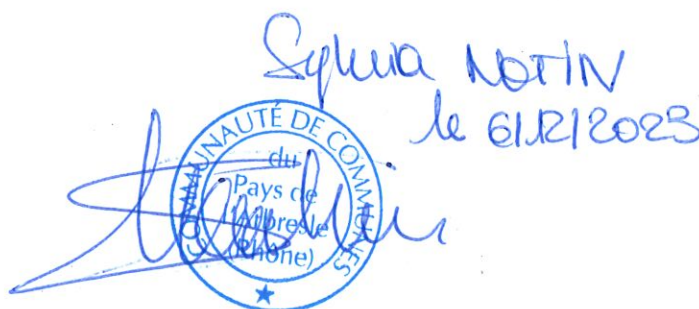 Sylvia NOTIN
le 6/12/2023
COMMUNAUTÉ DE COMMUNES
du
Pays de
l'Arbresle
(Rhône)